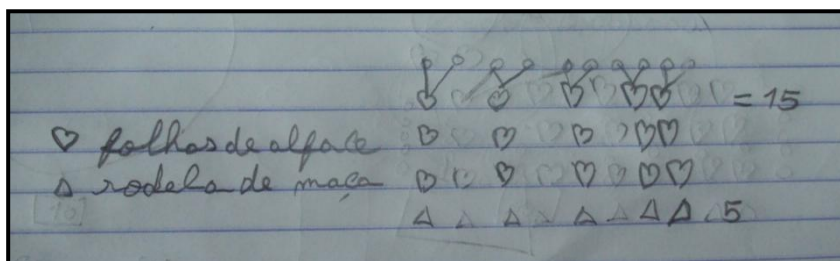 = 15
♡ folhas de alface
△ rodela de maça
5